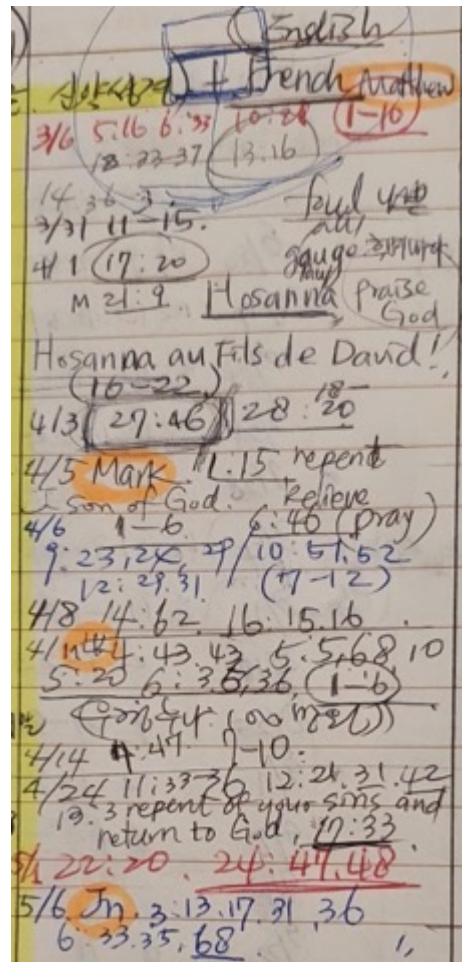 English
신약성경 + French Matthew
3/6 5:16 6:33 10:28 1-10
18:23-37 13:16
14 36 3
3/31 11-15.
foul
4/1 17:20
gauge
M 21:9 Hosanna praise God
Hosanna au Fils de David!
(16-22)
4/3 27:46 28:18-20
4/5 Mark 1.15 repent
J son of God. Believe
4/6 1-6 6:46 (pray)
9:23,24,29/10:51,52
12:29.31 (7-12)
4/8 14:62 16:15.16
4/11 4:43.43 5:5,68,10
5:20 6:35,36, 1-6
4/14 9:47 7-10.
4/24 11:33-36 12:21.31.42
13.3 repent of your sins and
return to God, 17:33
5/1 22:20. 24:47.48
5/6 Jn. 3:13.17.31,36
6:33.35,68